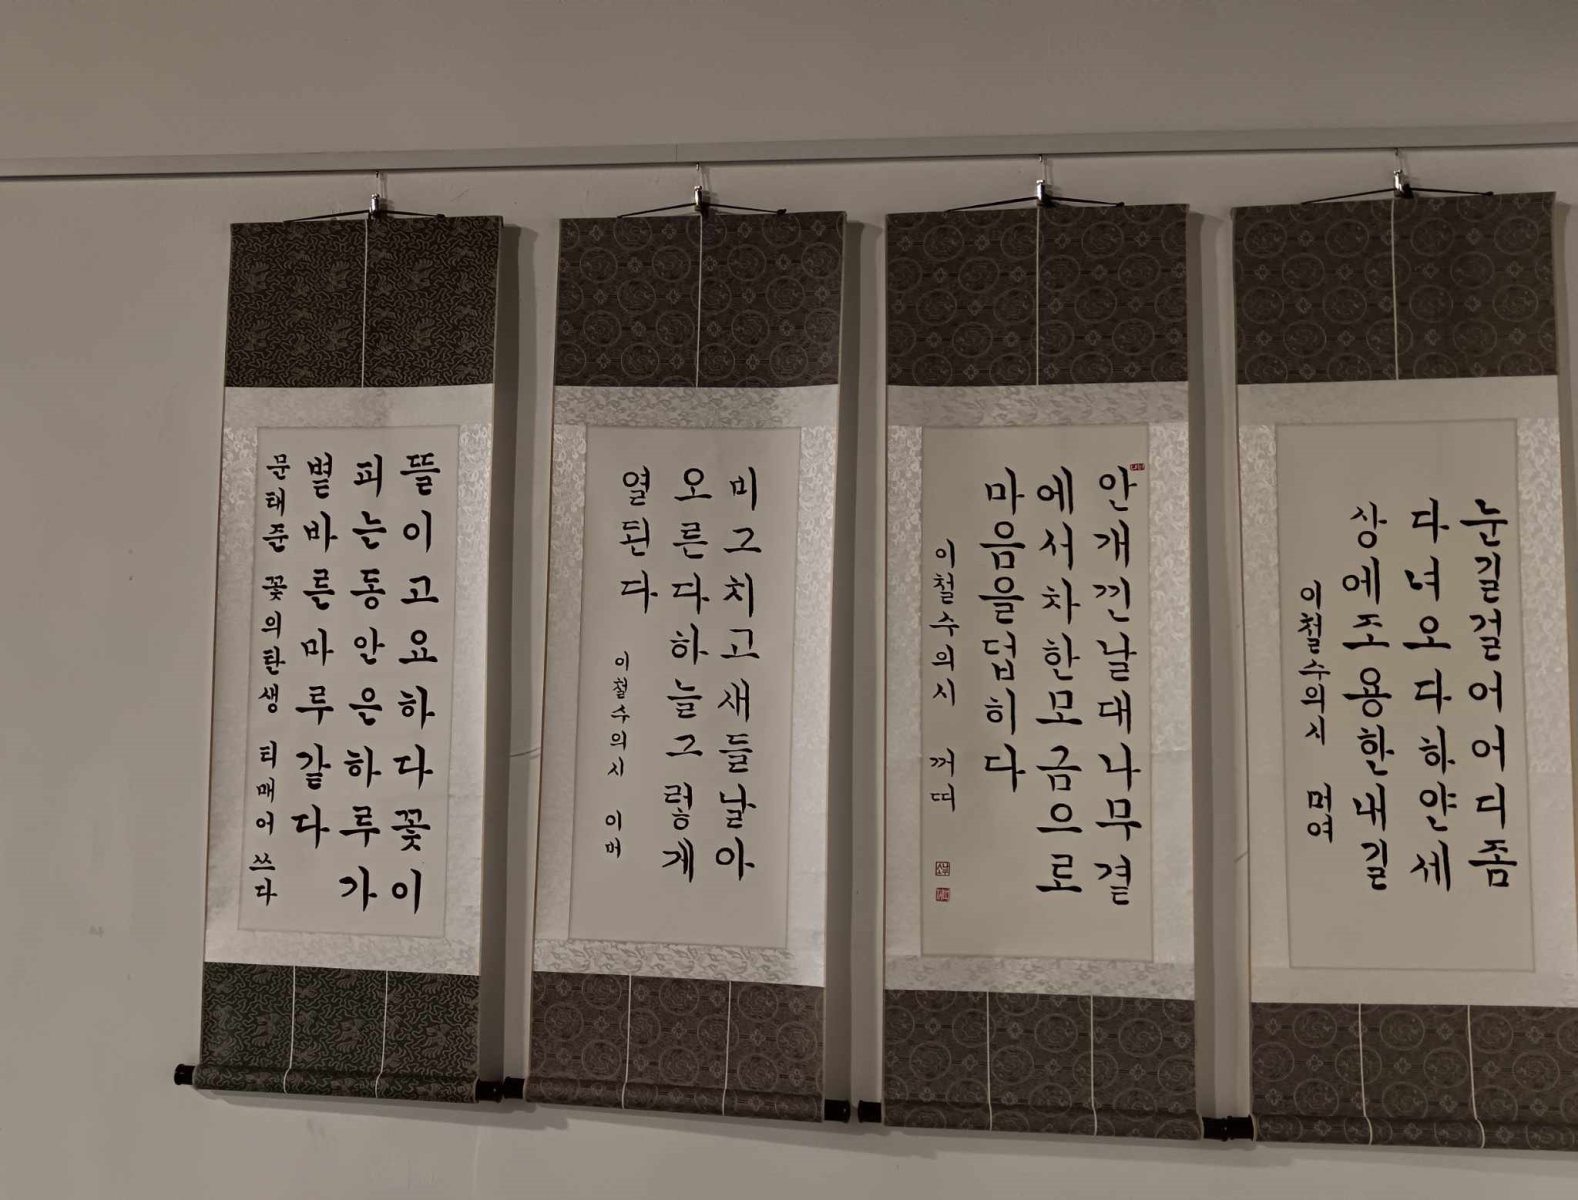 뜰이고요하다꽃이
피는동안은하루가
볕바른마루같다
문태준 꽃의탄생 티매어 쓰다
비그치고새들날아
오른다하늘그렇게
열린다
이철수의시 이머
안개낀날대나무곁
에서차한모금으로
마음을덥히다
이철수의시 꺼띠
눈길걸어어디좀
다녀오다하얀세
상에조용한내길
이철수의시 머여